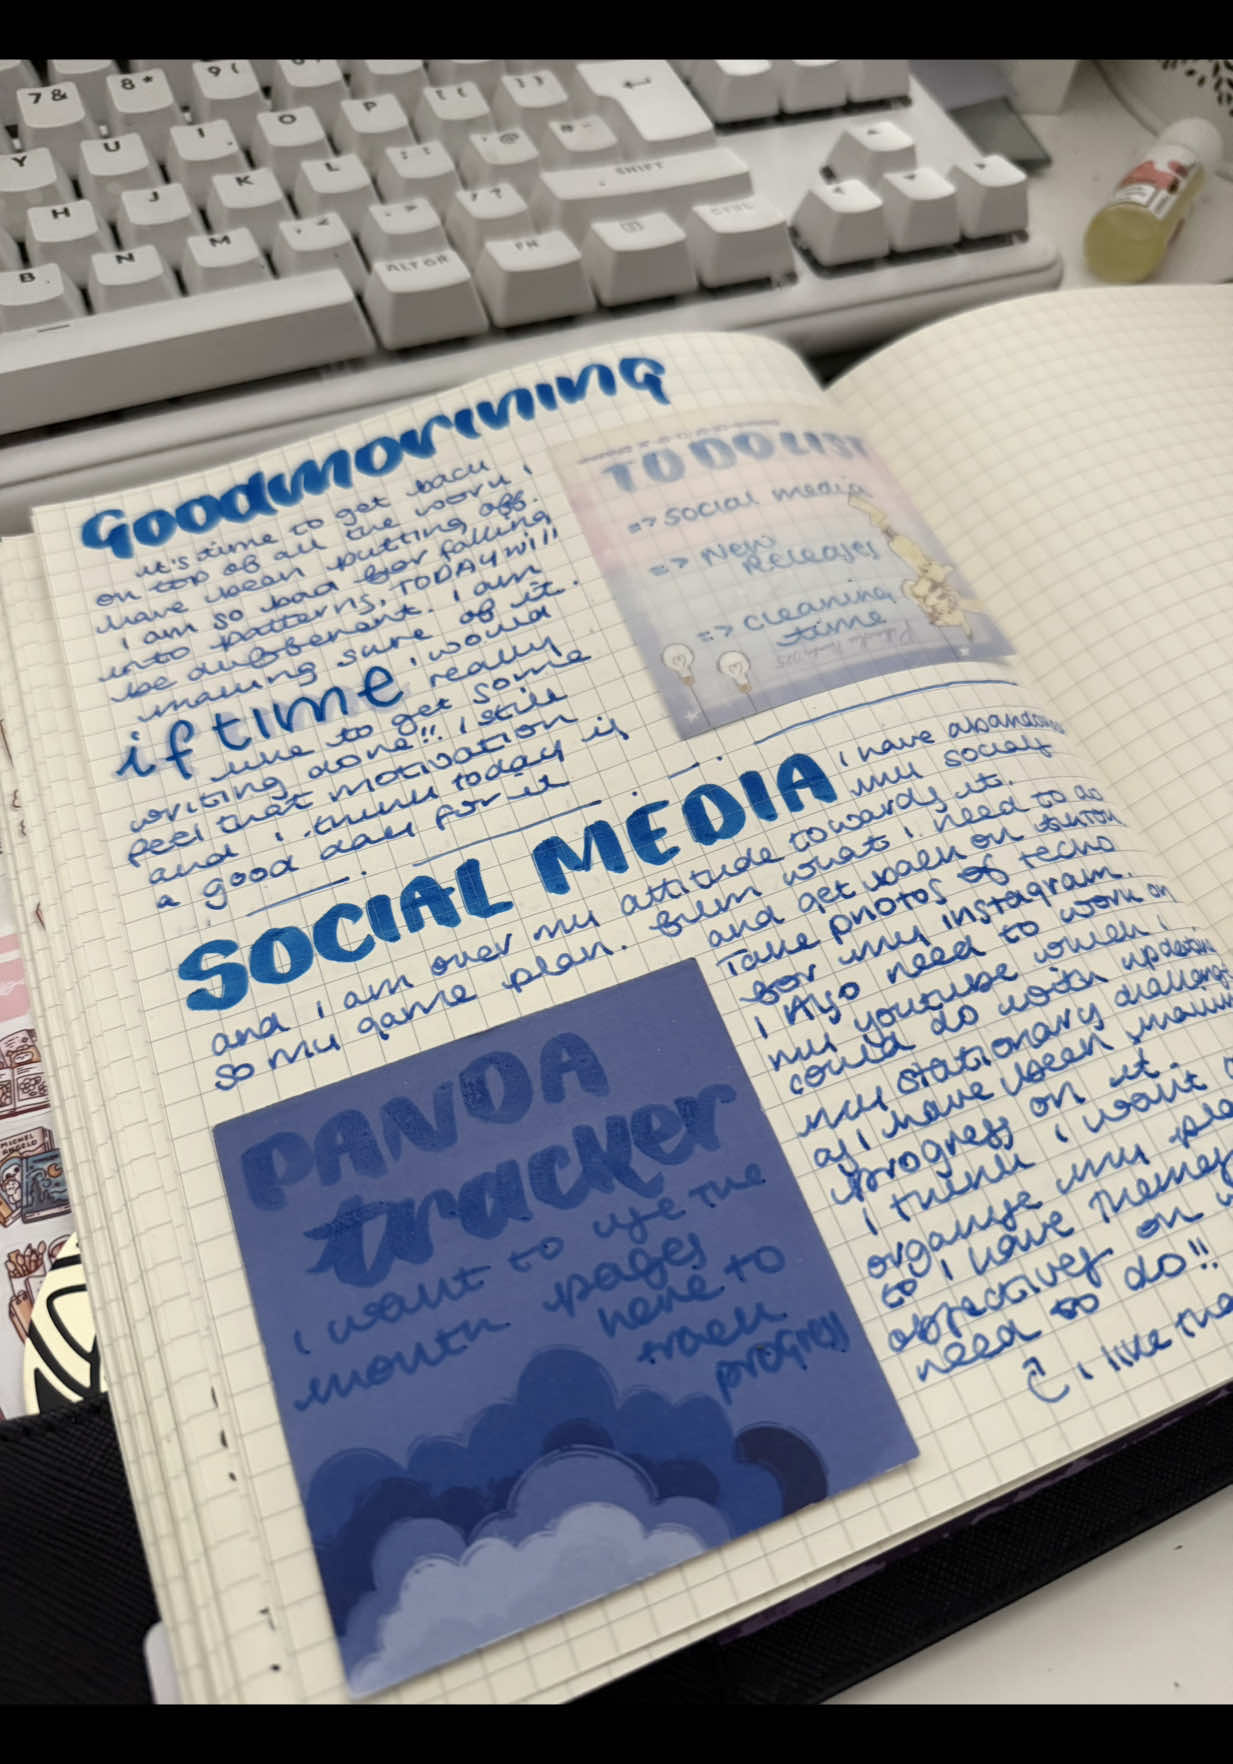 7 &
8 *
9 (
P
[ {
] }
Y
U
I
O
H
J
K
L
SHIFT
B
N
M
ALT GR
FN
CTRL
Goodmorining
it's time to get back
on top of all the work i
have been putting off.
i am so bad for falling
into patterns, TODAY will
be different. i am
making sure of it.
if time i would
really
like to get some
writing done!! i still
feel that motivation
and i think today is
a good day for it
TO DO LIST
=> social media
=> New
Releases
=> cleaning
time
SOCIAL MEDIA
i have abandoned
my socials
and i am over my attitude towards it.
so my game plan. film what i need to do
and get back on
Take photos of techo
for my instagram.
I Also need to work on
my youtube which i
could do with updating
my stationary challenge
as i have been making
progress on it.
i think i want
organise my
to i have themes
objectives on
need to do!!
i like the
PANDA
tracker
i want to use the
month pages
here to
track
progress
MICHEL
ANGELO